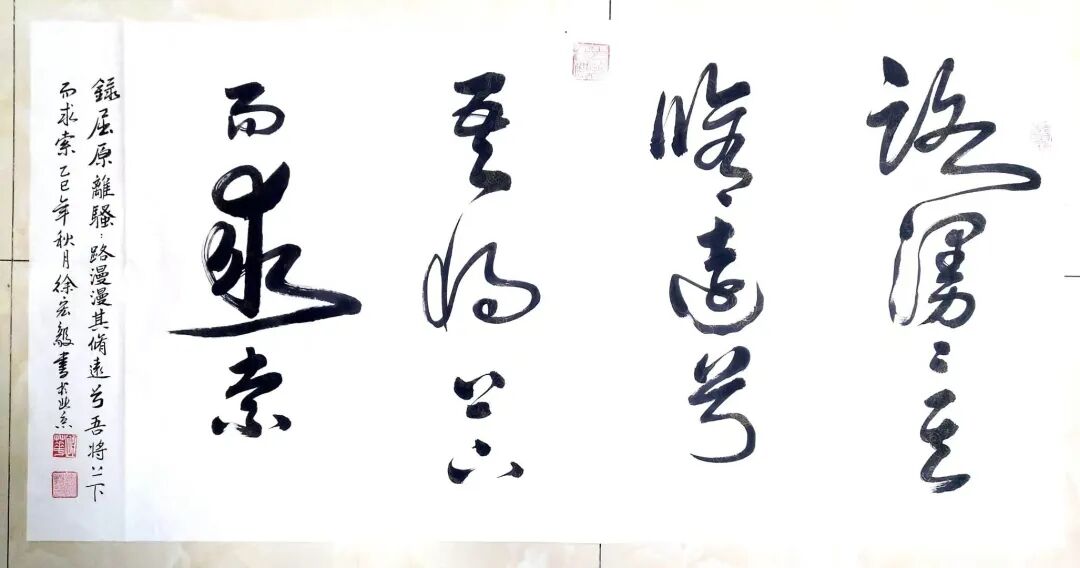 路漫〻其
脩遠兮
吾将上下
而求索
録屈原離騷：路漫漫其脩遠兮吾将上下
而求索乙巳年秋月徐宏毅書於北京